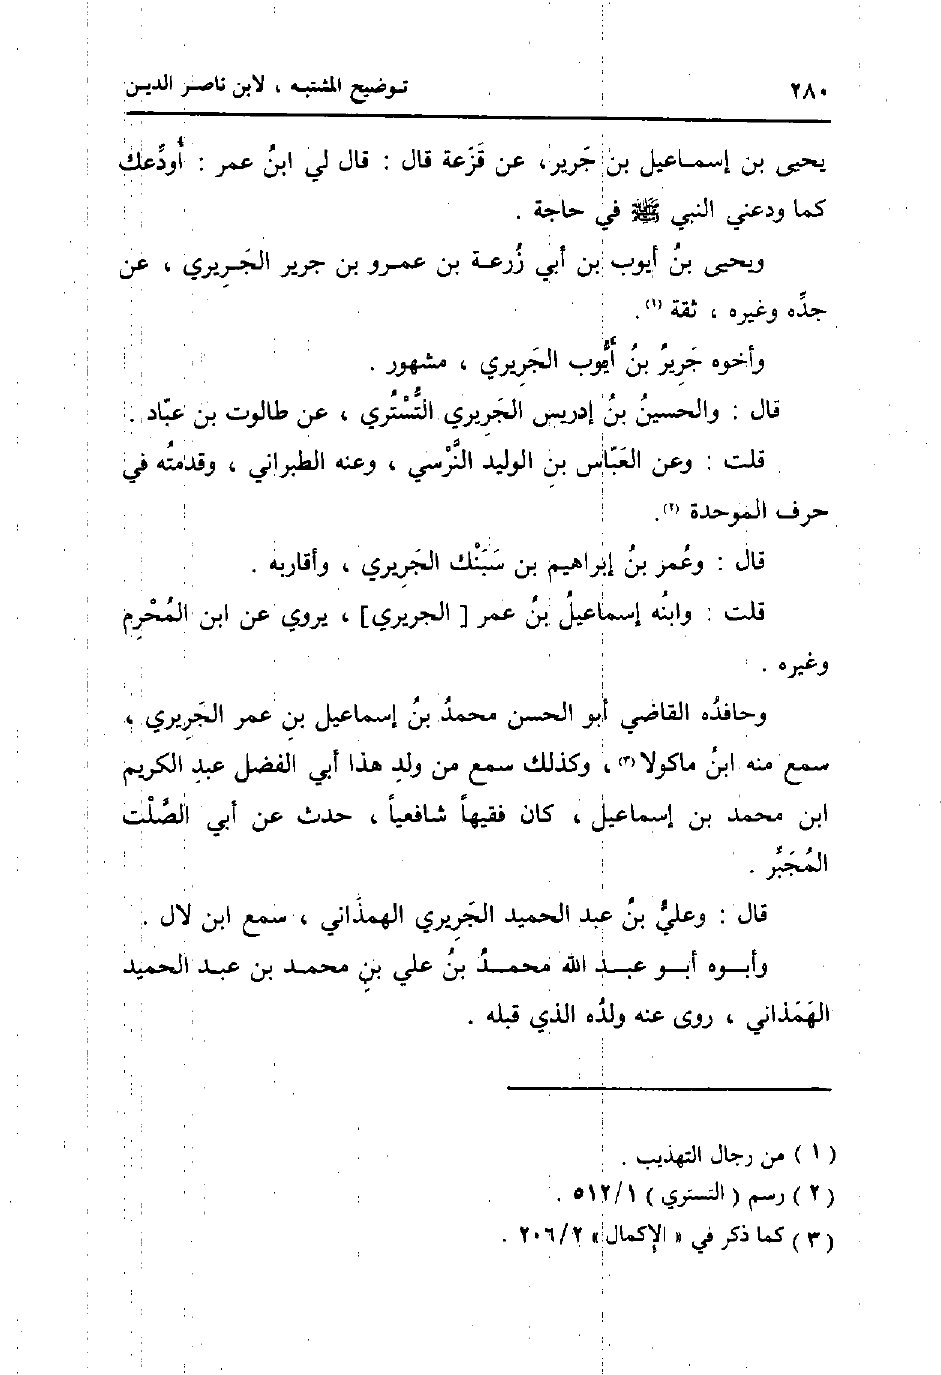 ٢٨٠
توضيح المشتبه ، لابن ناصر الدين
يحيى بن إسماعيل بن جَرير، عن قَزَعة قال : قال لي ابنُ عمر : أُودِّعك
كما ودعني النبي ﷺ في حاجة .
ويحيى بنُ أيوب بن أبي زُرعة بن عمرو بن جرير الجَرِيري ، عن
جدِّه وغيره ، ثقة (١).
وأخوه جَرِيرُ بنُ أَيُّوب الجَرِيري ، مشهور .
قال : والحسينُ بنُ إدريس الجَرِيري التُّسْتُري ، عن طالوت بن عبّاد .
قلت : وعن العَبّاس بنِ الوليد النَّرْسي ، وعنه الطبراني ، وقدمتُه في
حرف الموحدة (٢).
قال : وعُمر بنُ إبراهيم بن سَبَنْك الجَرِيري ، وأقاربه .
قلت : وابنُه إسماعيلُ بنُ عمر [ الجريري] ، يروي عن ابن المُحْرِم
وغيره .
وحافدُه القاضي أبو الحسن محمدُ بنُ إسماعيل بنِ عمر الجَرِيري ،
سمع منه ابنُ ماكولا (٣) ، وكذلك سمع من ولدِ هذا أبي الفضل عبدِ الكريم
ابن محمد بن إسماعيل ، كان فقيهاً شافعياً ، حدث عن أبي الصَّلْت
المُجَبِّر .
قال : وعليُّ بنُ عبد الحميد الجَرِيري الهمذَاني ، سمع ابن لال .
وأبوه أبو عبد الله محمدُ بنُ علي بنِ محمد بن عبد الحميد
الهَمَذاني ، روى عنه ولدُه الذي قبله .
(١) من رجال التهذيب .
(٢) رسم ( التستري ) ٥١٢/١ .
(٣) كما ذكر في « الإكمال» ٢٠٦/٢ .